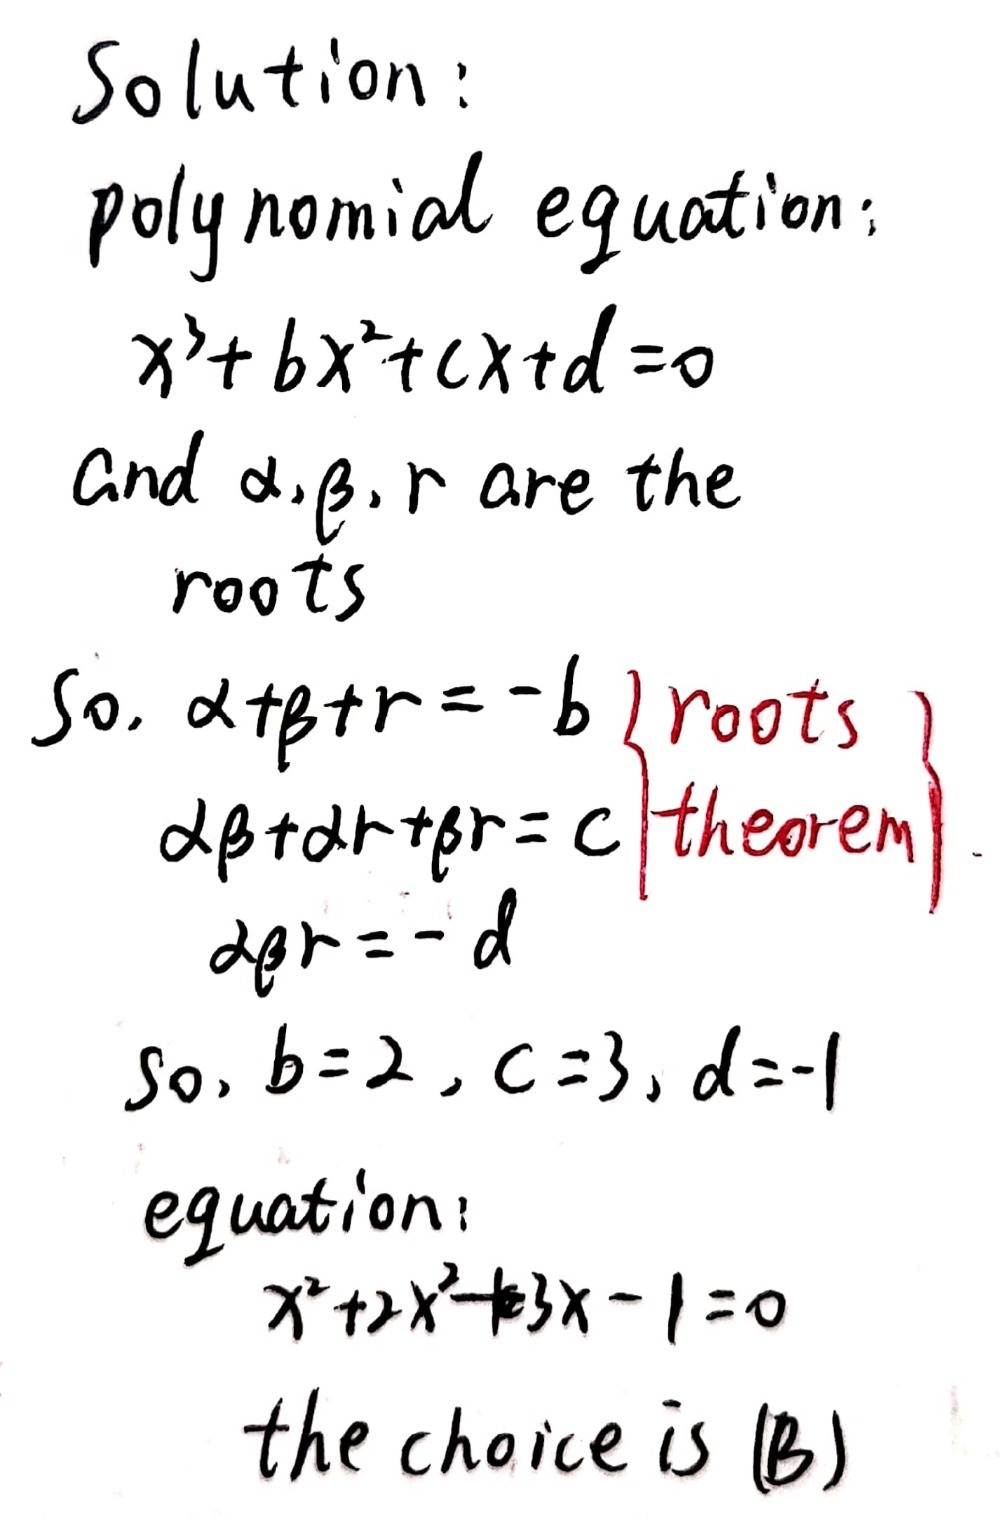 Solution:
polynomial equation:
x³+bx²+cx+d=0
and α,β,r are the
roots
So, α+β+r=-b {roots
αβ+αr+βr=c theorem}
αβr=-d
So, b=2, c=3, d=-1
equation:
x²+2x²+3x-1=0
the choice is (B)